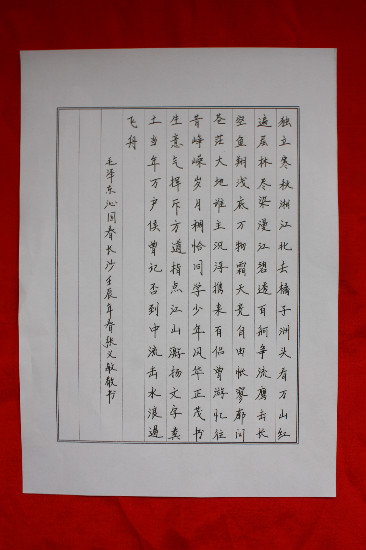 独立寒秋湘江北去橘子洲头看万山红
遍层林尽染漫江碧透百舸争流鹰击长
空鱼翔浅底万物霜天竞自由怅寥廓问
苍茫大地谁主沉浮携来百侣曾游忆往
昔峥嵘岁月稠恰同学少年风华正茂书
生意气挥斥方遒指点江山激扬文字粪
土当年万户侯曾记否到中流击水浪遏
飞舟
毛泽东沁园春长沙壬辰年春张义敏敬书